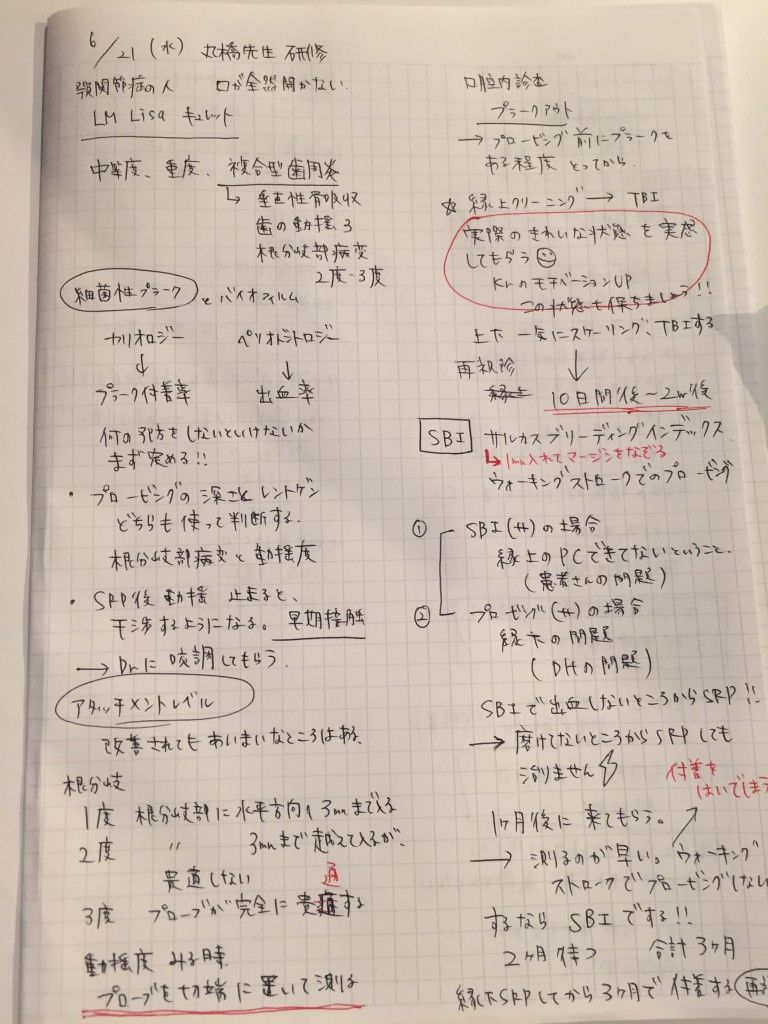 6/21 (水) 丸橋先生 研修
顎関節症の人 口が全然開かない
LM Lisa キュレット
中等度、重度、複合型歯周炎
↳ 垂直性骨吸収
歯の動揺 3
根分岐部病変
2度-3度
細菌性プラーク と バイオフィルム
カリオロジー ペリオドントロジー
↓ ↓
プラーク付着率 出血率
何の予防をしないといけないか
まず定める!!
・プロービングの深さと レントゲン
どちらも使って判断する.
根分岐部病変と動揺度
・SRP後 動揺 止まると、
干渉するようになる。早期接触
→ Drに咬調してもらう.
アタッチメントレベル
改善されても あいまいなところはある.
根分岐
1度 根分岐部に水平方向へ3mmまで入る
2度 〃 3mmまで越えて入るが、
貫通しない 通
3度 プローブが完全に貫通する
動揺度 みる時.
プローブを切端に置いて測る
口腔内診査
プラークアウト
→ プロービング前にプラークを
ある程度 とってから.
☆ 縁上クリーニング → TBI
実際のきれいな状態を実感
してもらう☺
Krのモチベーション UP
この状態を保ちましょう!!
上下 一気にスケーリング、TBIする.
↓
再視診
10日間後~2w後
SBI サルカスブリーディングインデックス
↳ 1mm入れてマージンをなぞる
ウォーキングストロークでのプロービング
① SBI(+)の場合
縁上のPCできてないということ.
(患者さんの問題)
② プロービング(+)の場合
縁下の問題
(DHの問題)
SBIで出血しないところからSRP!!
→ 磨けてないところからSRPしても
治りません
付着を
はいでしまう
1ヶ月後に来てもらう。
→ 測るのが早い。ウォーキング
ストロークでプロービングしない
するなら SBIでする!!
2ヶ月待つ 合計3ヶ月
縁下SRPしてから3ヶ月で付着する